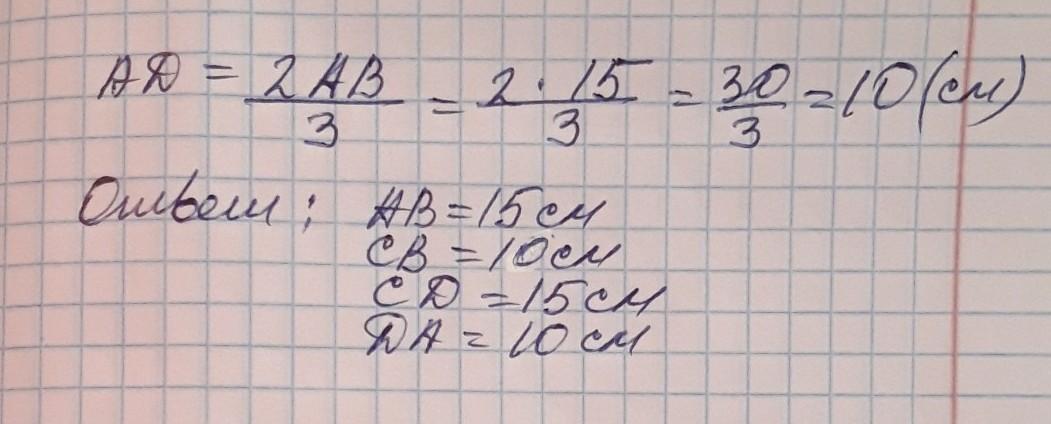 AD = 2AB/3 = 2·15/3 = 30/3 = 10(см)
Ответ: AB=15см
CB=10см
CD=15см
DA=10см